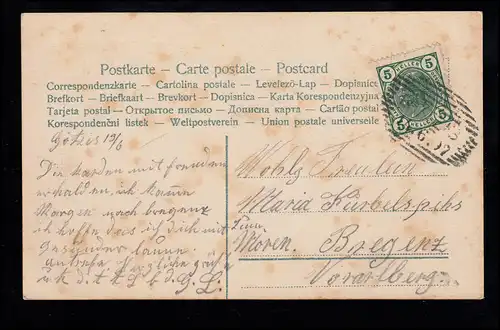 Postkarte — Carte postale — Postcard
Correspondenzkarte — Cartolina postale — Levelező-Lap — Dopisnice
Brefkort — Briefkaart — Brevkort — Dopisnica — Karta Korespondenzyjna
Tarjeta postal — Открытое письмо — Дописна карта — Cartão postal
Korespondenční listek — Weltpostverein — Union postale universelle
5 HELLER 5
5 HELLER 5
Götzis 19/6
Die Karden mit freuden
erhalden, ich kome
Morgen nach bregenz
ich hoffe dass ich dich mit
Gesunder
Herzliche
G. L.
Wohlg Freulein
Maria
Bregenz
Vorarlberg